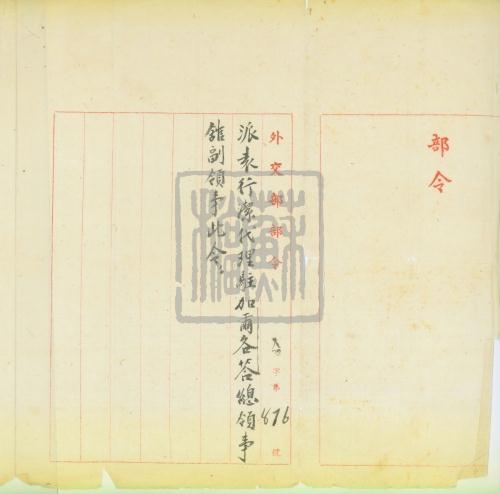 部令
外交部部令 字第876號
派袁行潔代理駐加爾各答總領事
館副領事此令。